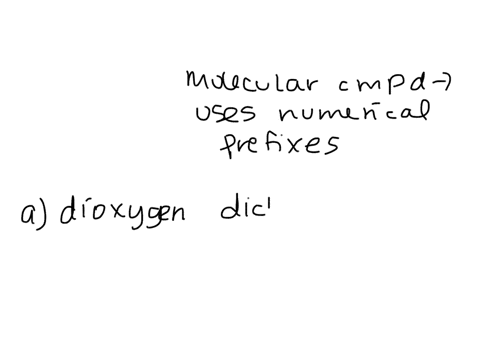 Molecular cmpd →
uses numerical
prefixes
a) dioxygen dic